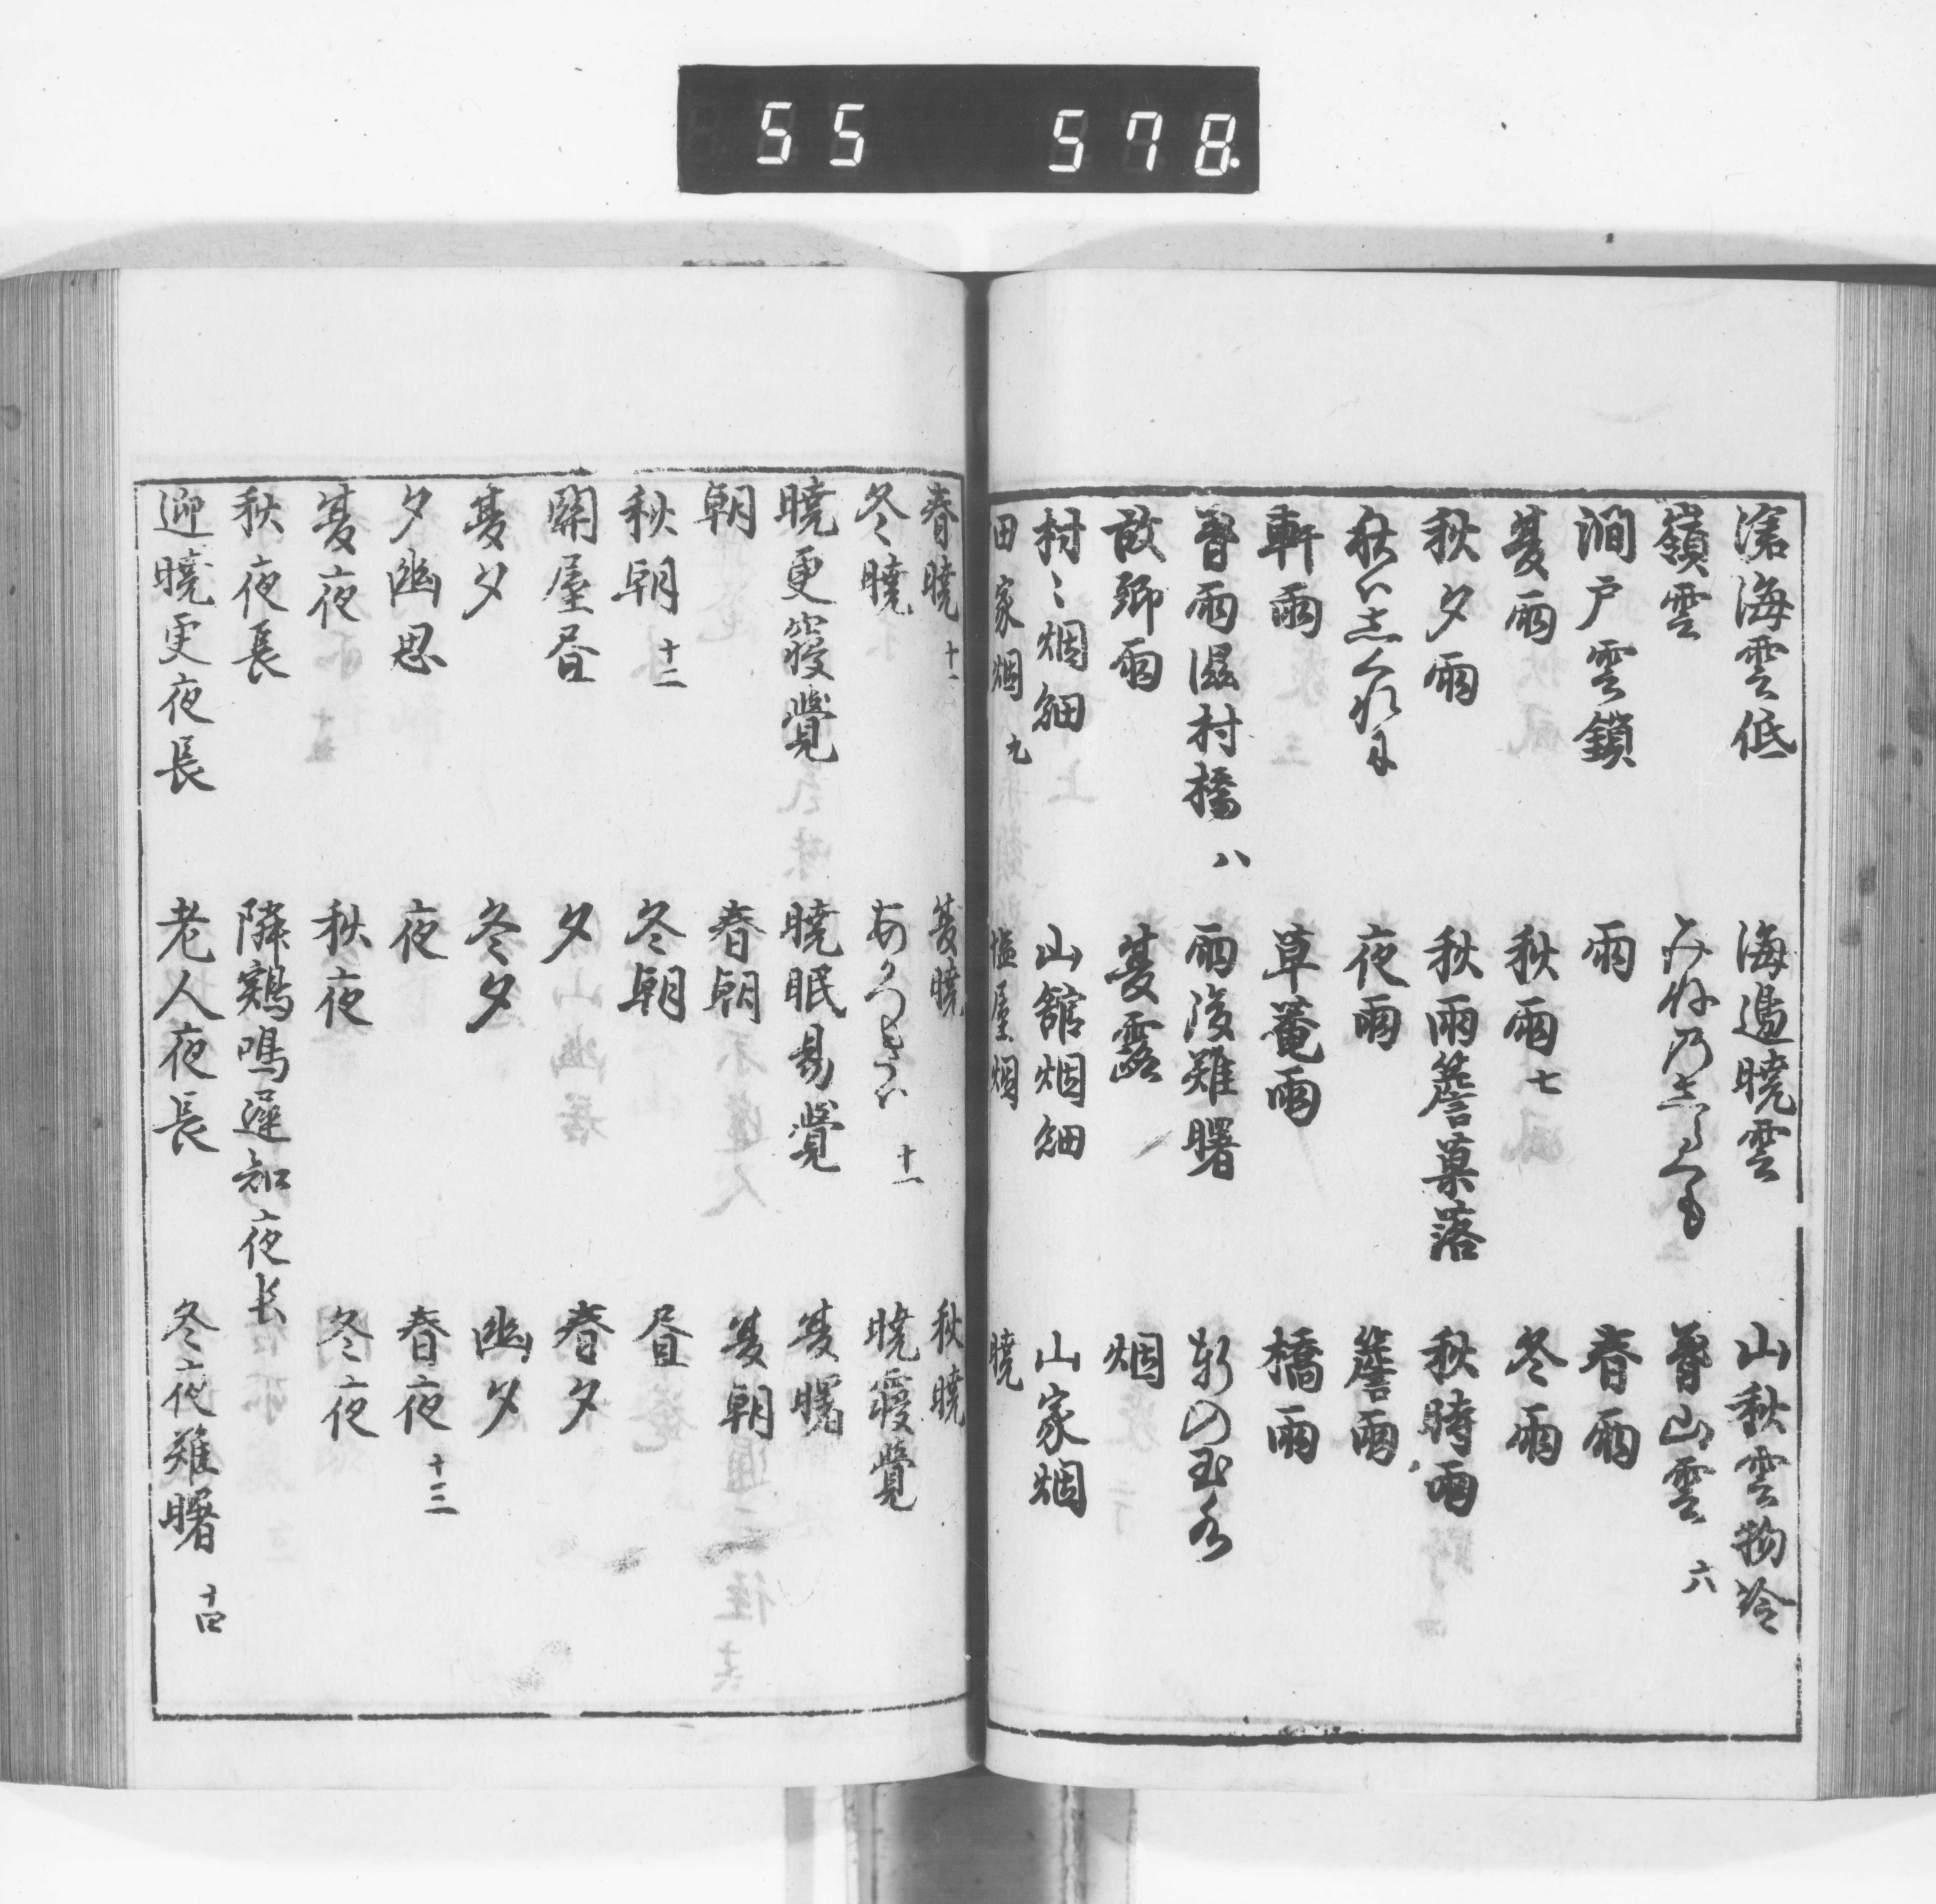 55 578
滄海雲低 海邊曉雲 山秋雲物冷
嶺雲 みねのしらくも 暮山雲 六
澗戸雲鎖 雨 春雨
夏雨 秋雨 七 冬雨
秋夕雨 秋雨簷菓落 秋時雨
夜雨 簷雨
軒雨 草菴雨 橋雨
暮雨湿村橋 八 雨後難曙
故郷雨 夏露 烟
村〻烟細 山舘烟細 山家烟
田家烟 九 塩屋烟 曉
春曉 十 夏曉 秋曉
冬曉 十一 曉寝覺
曉更寝覺 曉眠易覺 夏曙
朝 春朝 夏朝
秋朝 十二 冬朝 昼
閑屋昼 夕 春夕
夏夕 冬夕 幽夕
夕幽思 夜 春夜 十三
夏夜 秋夜 冬夜
秋夜長 隣鶏鳴遅知夜长
迎曉更夜長 老人夜長 冬夜難曙 十四